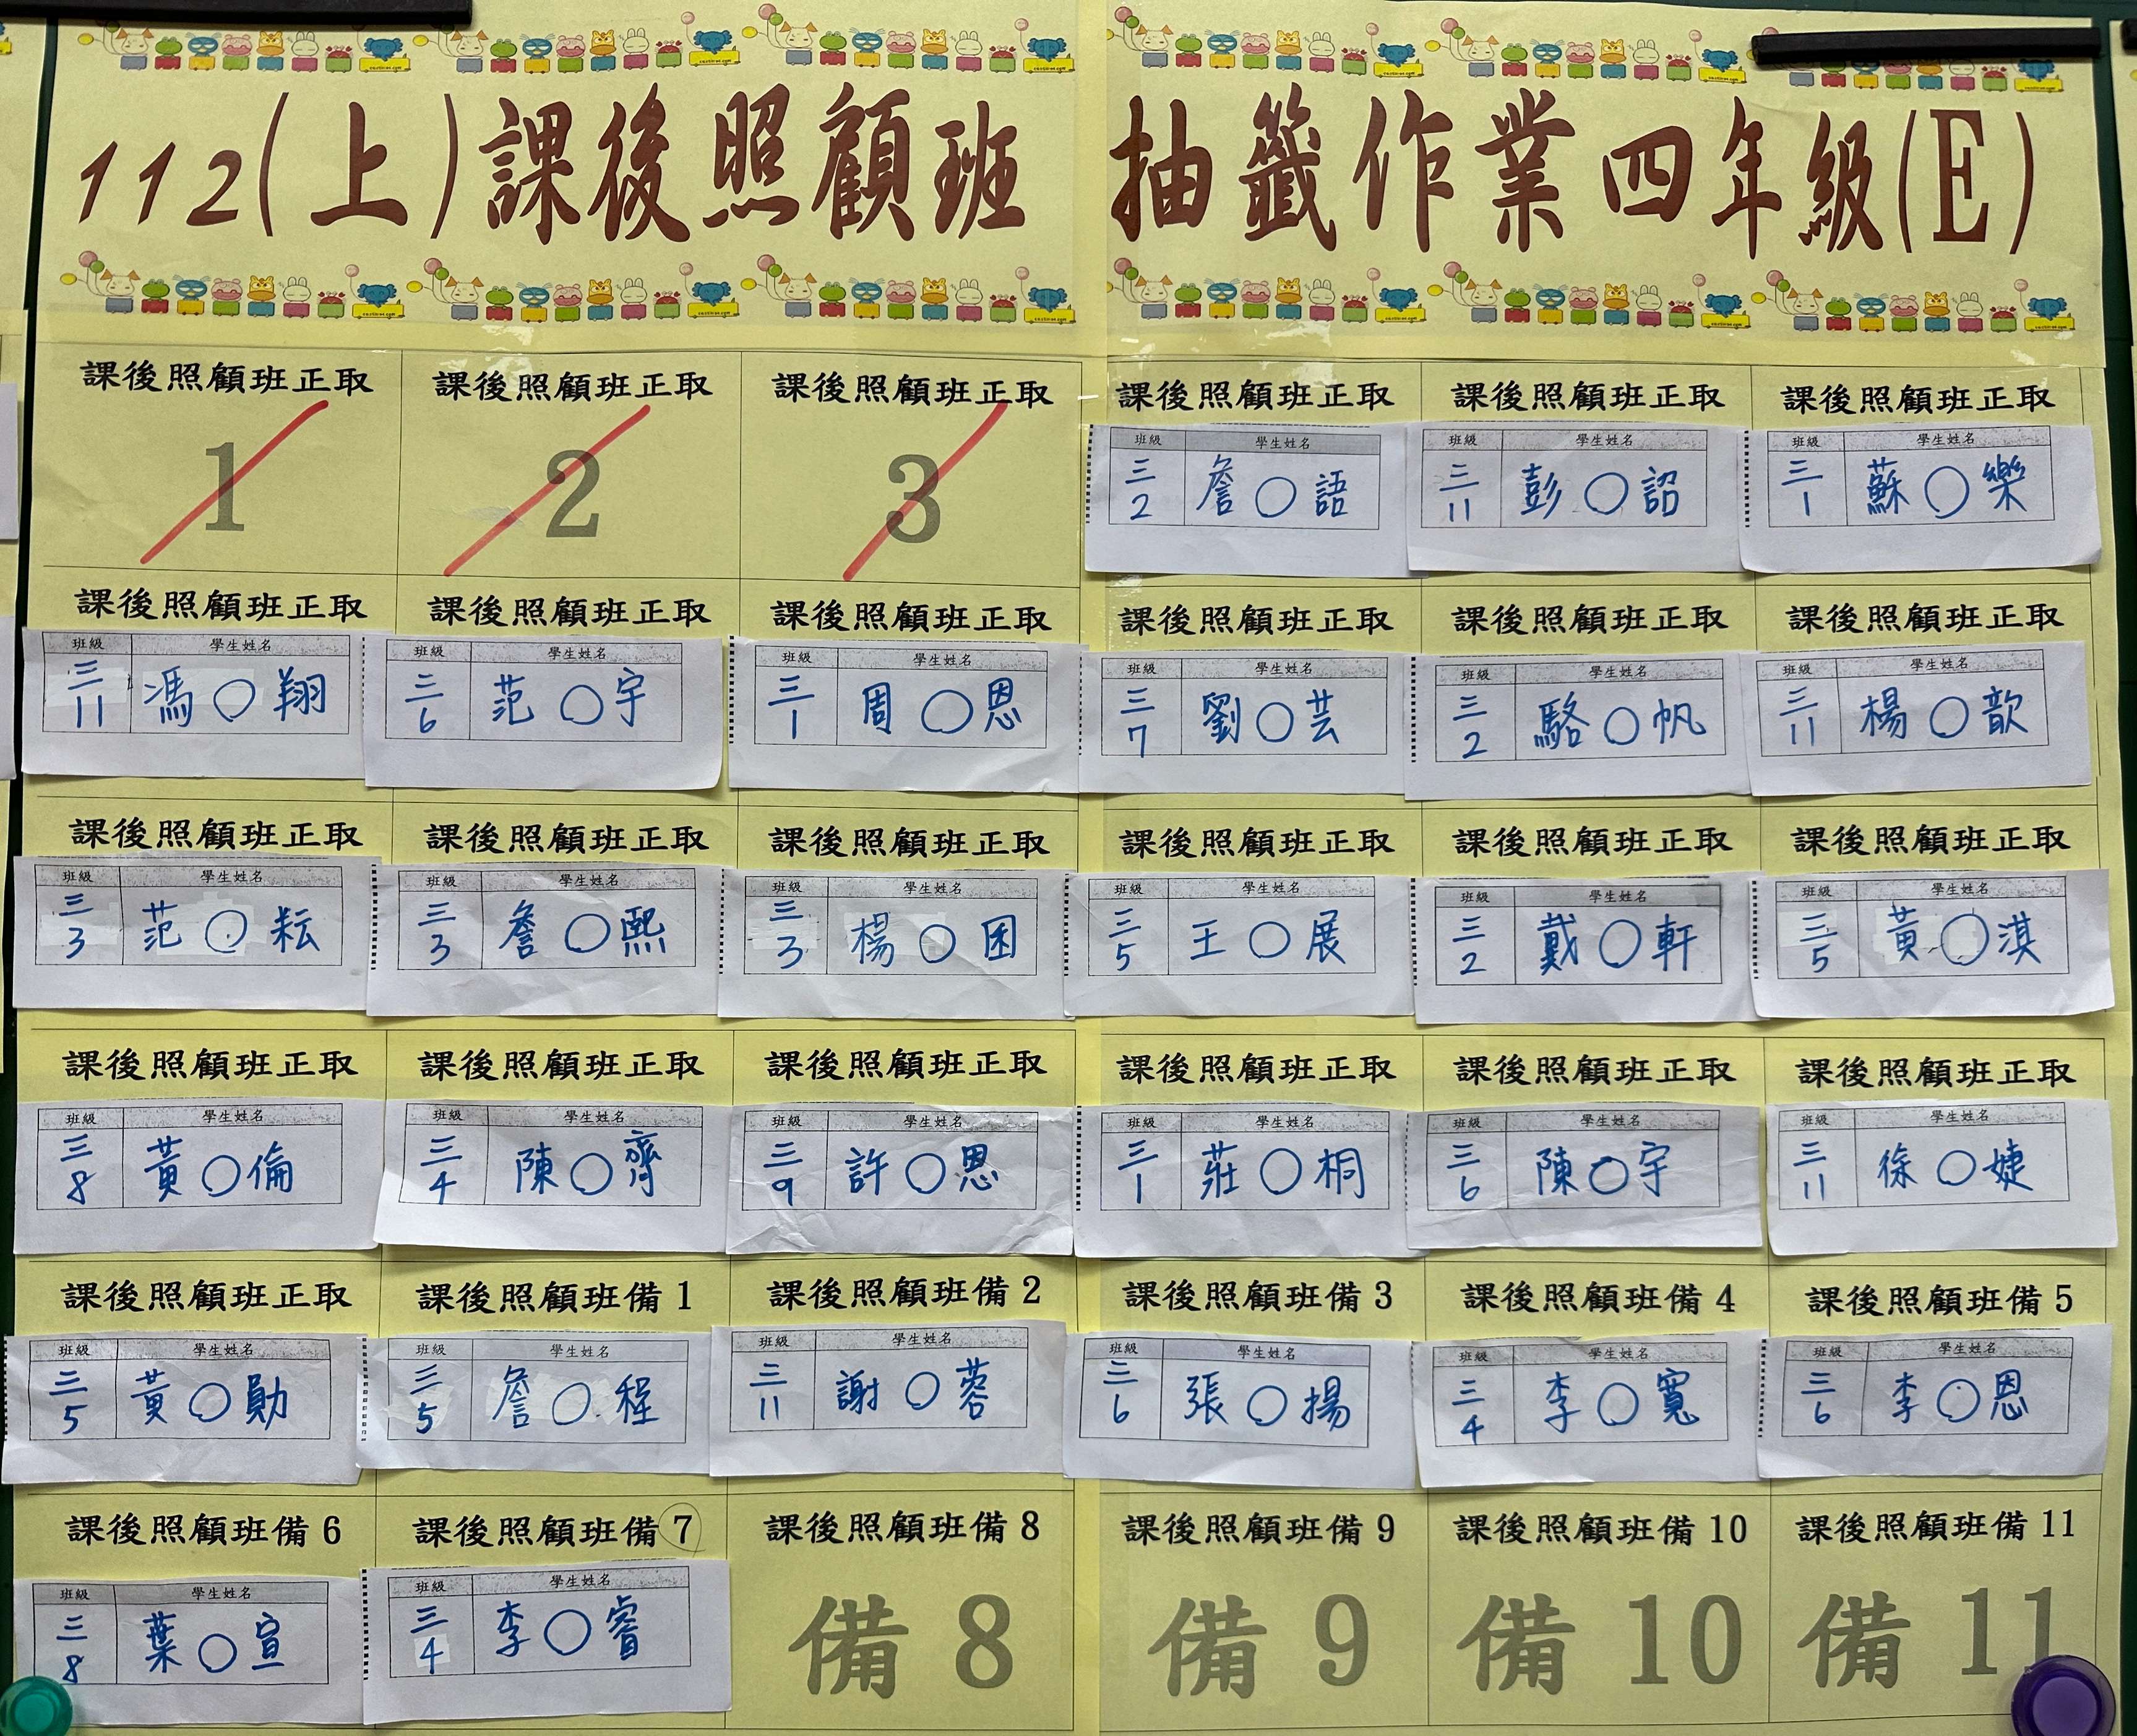 112(上)課後照顧班 抽籤作業四年級(E)
課後照顧班正取 課後照顧班正取 課後照顧班正取 課後照顧班正取 課後照顧班正取 課後照顧班正取
1 2 3
班級 學生姓名 班級 學生姓名 班級 學生姓名
三2 詹○語 三11 彭○詔 三1 蘇○樂
課後照顧班正取 課後照顧班正取 課後照顧班正取 課後照顧班正取 課後照顧班正取 課後照顧班正取
班級 學生姓名 班級 學生姓名 班級 學生姓名 班級 學生姓名 班級 學生姓名 班級 學生姓名
三11 馮○翔 三6 范○宇 三1 周○恩 三7 劉○芸 三2 駱○帆 三11 楊○歆
課後照顧班正取 課後照顧班正取 課後照顧班正取 課後照顧班正取 課後照顧班正取 課後照顧班正取
班級 學生姓名 班級 學生姓名 班級 學生姓名 班級 學生姓名 班級 學生姓名 班級 學生姓名
三3 范○耘 三3 詹○熙 三3 楊○ 三5 王○展 三2 戴○軒 三5 黃○淇
課後照顧班正取 課後照顧班正取 課後照顧班正取 課後照顧班正取 課後照顧班正取 課後照顧班正取
班級 學生姓名 班級 學生姓名 班級 學生姓名 班級 學生姓名 班級 學生姓名 班級 學生姓名
三8 黃○倫 三4 陳○齊 三9 許○恩 三1 莊○桐 三6 陳○宇 三11 徐○婕
課後照顧班正取 課後照顧班備1 課後照顧班備2 課後照顧班備3 課後照顧班備4 課後照顧班備5
班級 學生姓名 班級 學生姓名 班級 學生姓名 班級 學生姓名 班級 學生姓名 班級 學生姓名
三5 黃○勛 三5 詹○程 三11 謝○蓉 三6 張○揚 三4 李○寬 三6 李○恩
課後照顧班備6 課後照顧班備7 課後照顧班備8 課後照顧班備9 課後照顧班備10 課後照顧班備11
班級 學生姓名 班級 學生姓名
三8 葉○宣 三4 李○睿 備8 備9 備10 備11